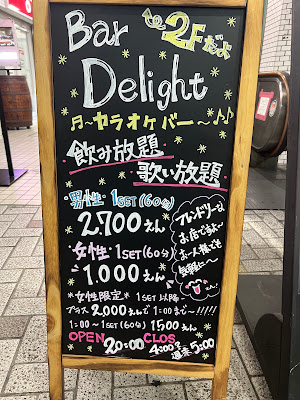 Bar
2Fだよ
Delight
♬~カラオケバー~♪♪
飲み放題
歌い放題
・男性・1SET(60分)
2,700えん
・女性・1SET(60分)
1,000えん
フレンドリーな
お店ですよ~
お一人様でも
気軽に~
*女性限定* 1SET以降
プラス2,000えんで1:00まで~!!!!!
1:00~1SET(60分)1500えん
OPEN CLOS
20:00 4:00
週末5:00